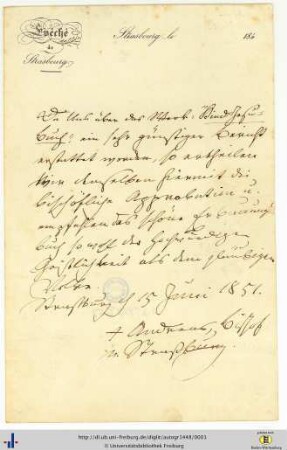 Évêché
de
Strasbourg.
Strasbourg, le 184
Da Uns über das Werk: Kind Jesu-
Buch: ein sehr günstiger Bericht
erstattet worden, so ertheilen
Wir demselben hiermit die
bischöfliche Approbation u.
empfehlen das schöne Erbauungs
buch sowohl der Hochwürdigen
Geistlichkeit als dem gläubigen
Volke.
Strassburg d 15 Juni 1851.
+ Andreas, Bischof
v. Straßburg.
http://dl.ub.uni-freiburg.de/diglit/autogr1448/0001
© Universitätsbibliothek Freiburg